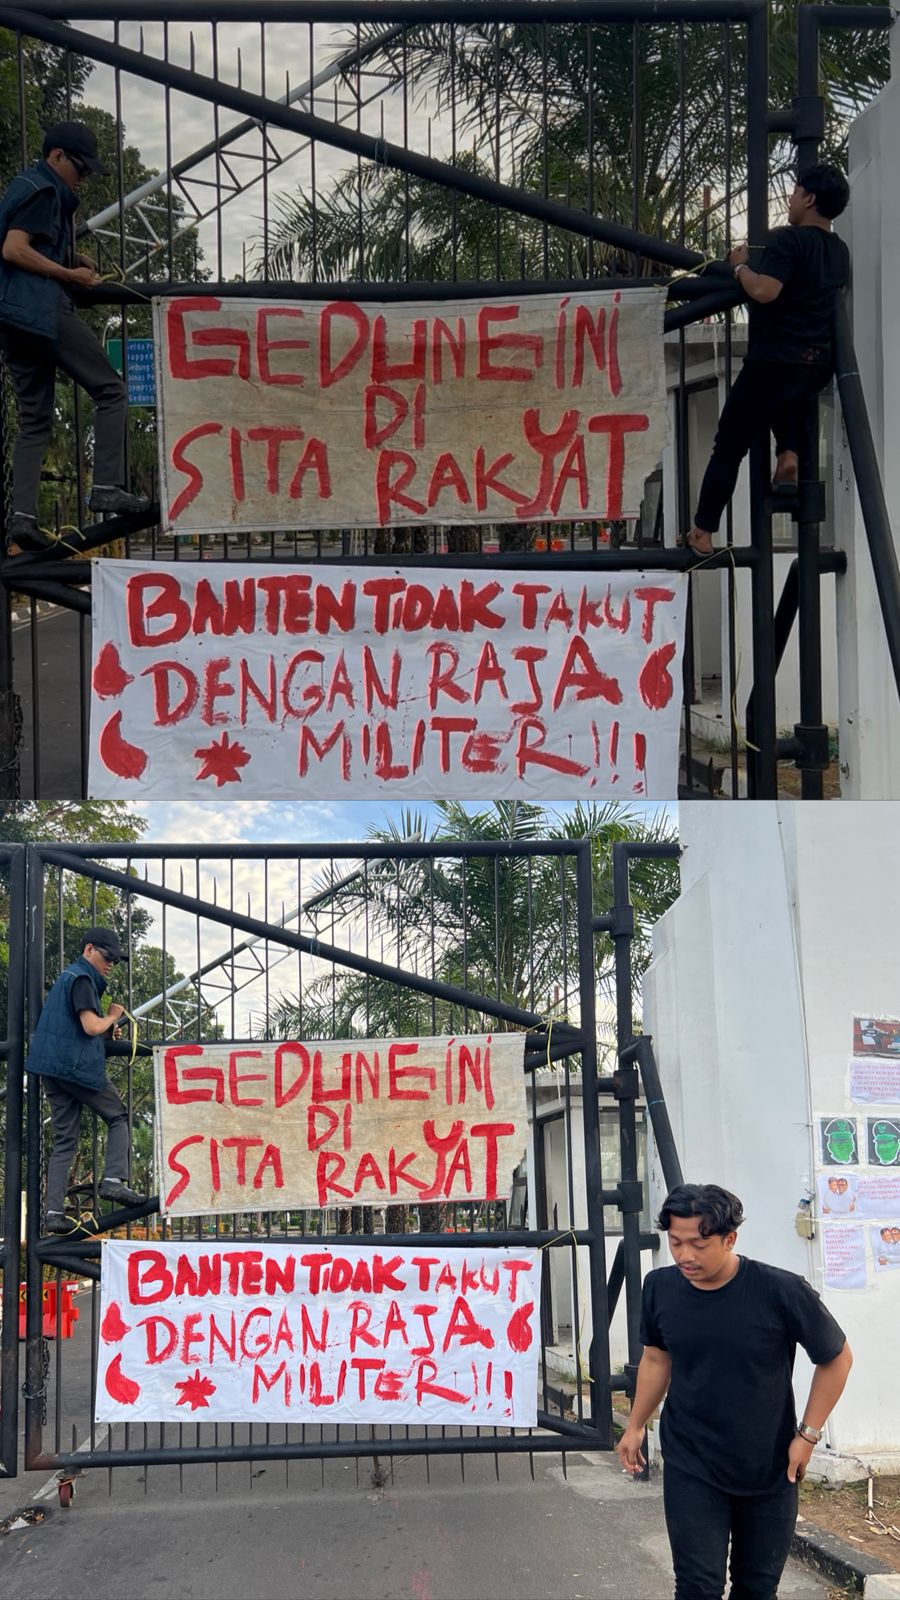 GEDUNG INI
DI
SITA RAKYAT
BANTEN TIDAK TAKUT
DENGAN RAJA
MILITER!!!
GEDUNG INI
DI
SITA RAKYAT
BANTEN TIDAK TAKUT
DENGAN RAJA
MILITER!!!